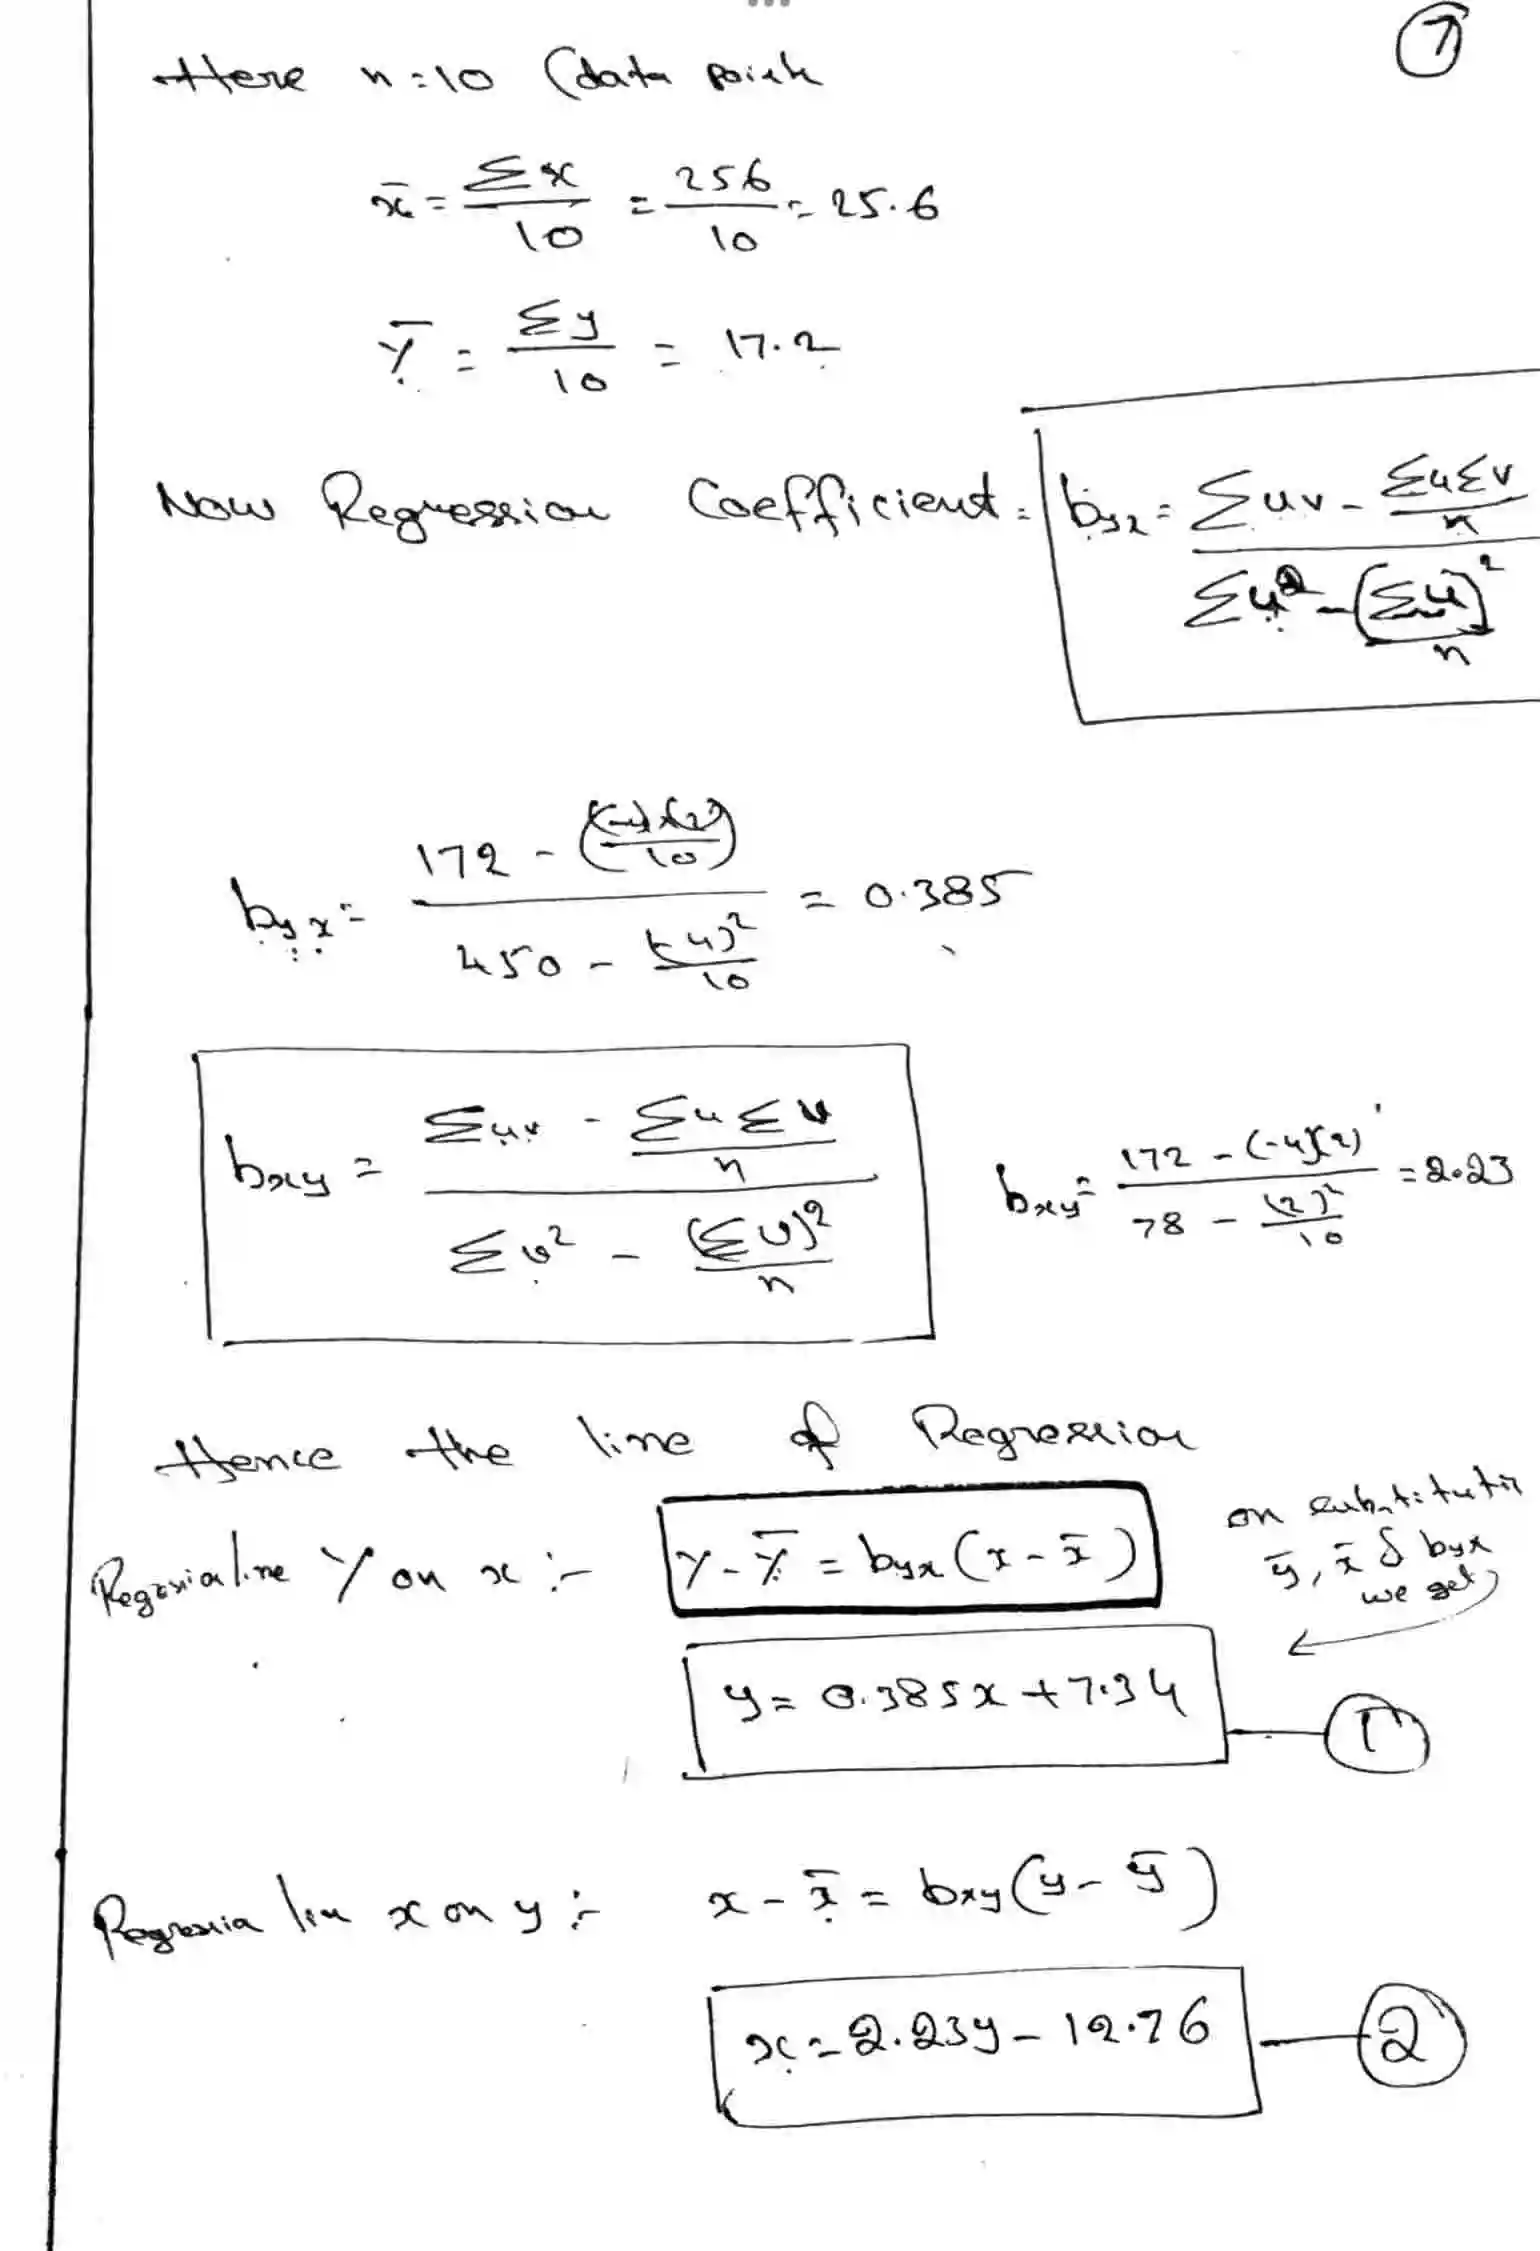 7
Here n=10 (data point
x̄ = Σx/10 = 256/10 = 25.6
Ȳ = Σy/10 = 17.2
Now Regression Coefficient = byx = (Σuv - ΣuΣv/n) / (Σu² - (Σu)²/n)
byx = (172 - ((-4)×(2)/10)) / (450 - (-4)²/10) = 0.385
bxy = (Σuv - ΣuΣv/n) / (Σv² - (Σv)²/n)
bxy = (172 - (-4)(2)) / (78 - (2)²/10) = 2.23
Hence the line of Regression
Y on x :- Y - Ȳ = byx (x - x̄)
on substitutin
ȳ, x̄ & byx
we get
y = 0.385x + 7.34 — 1
x on y :- x - x̄ = bxy (y - ȳ)
x = 2.23y - 12.76 — 2